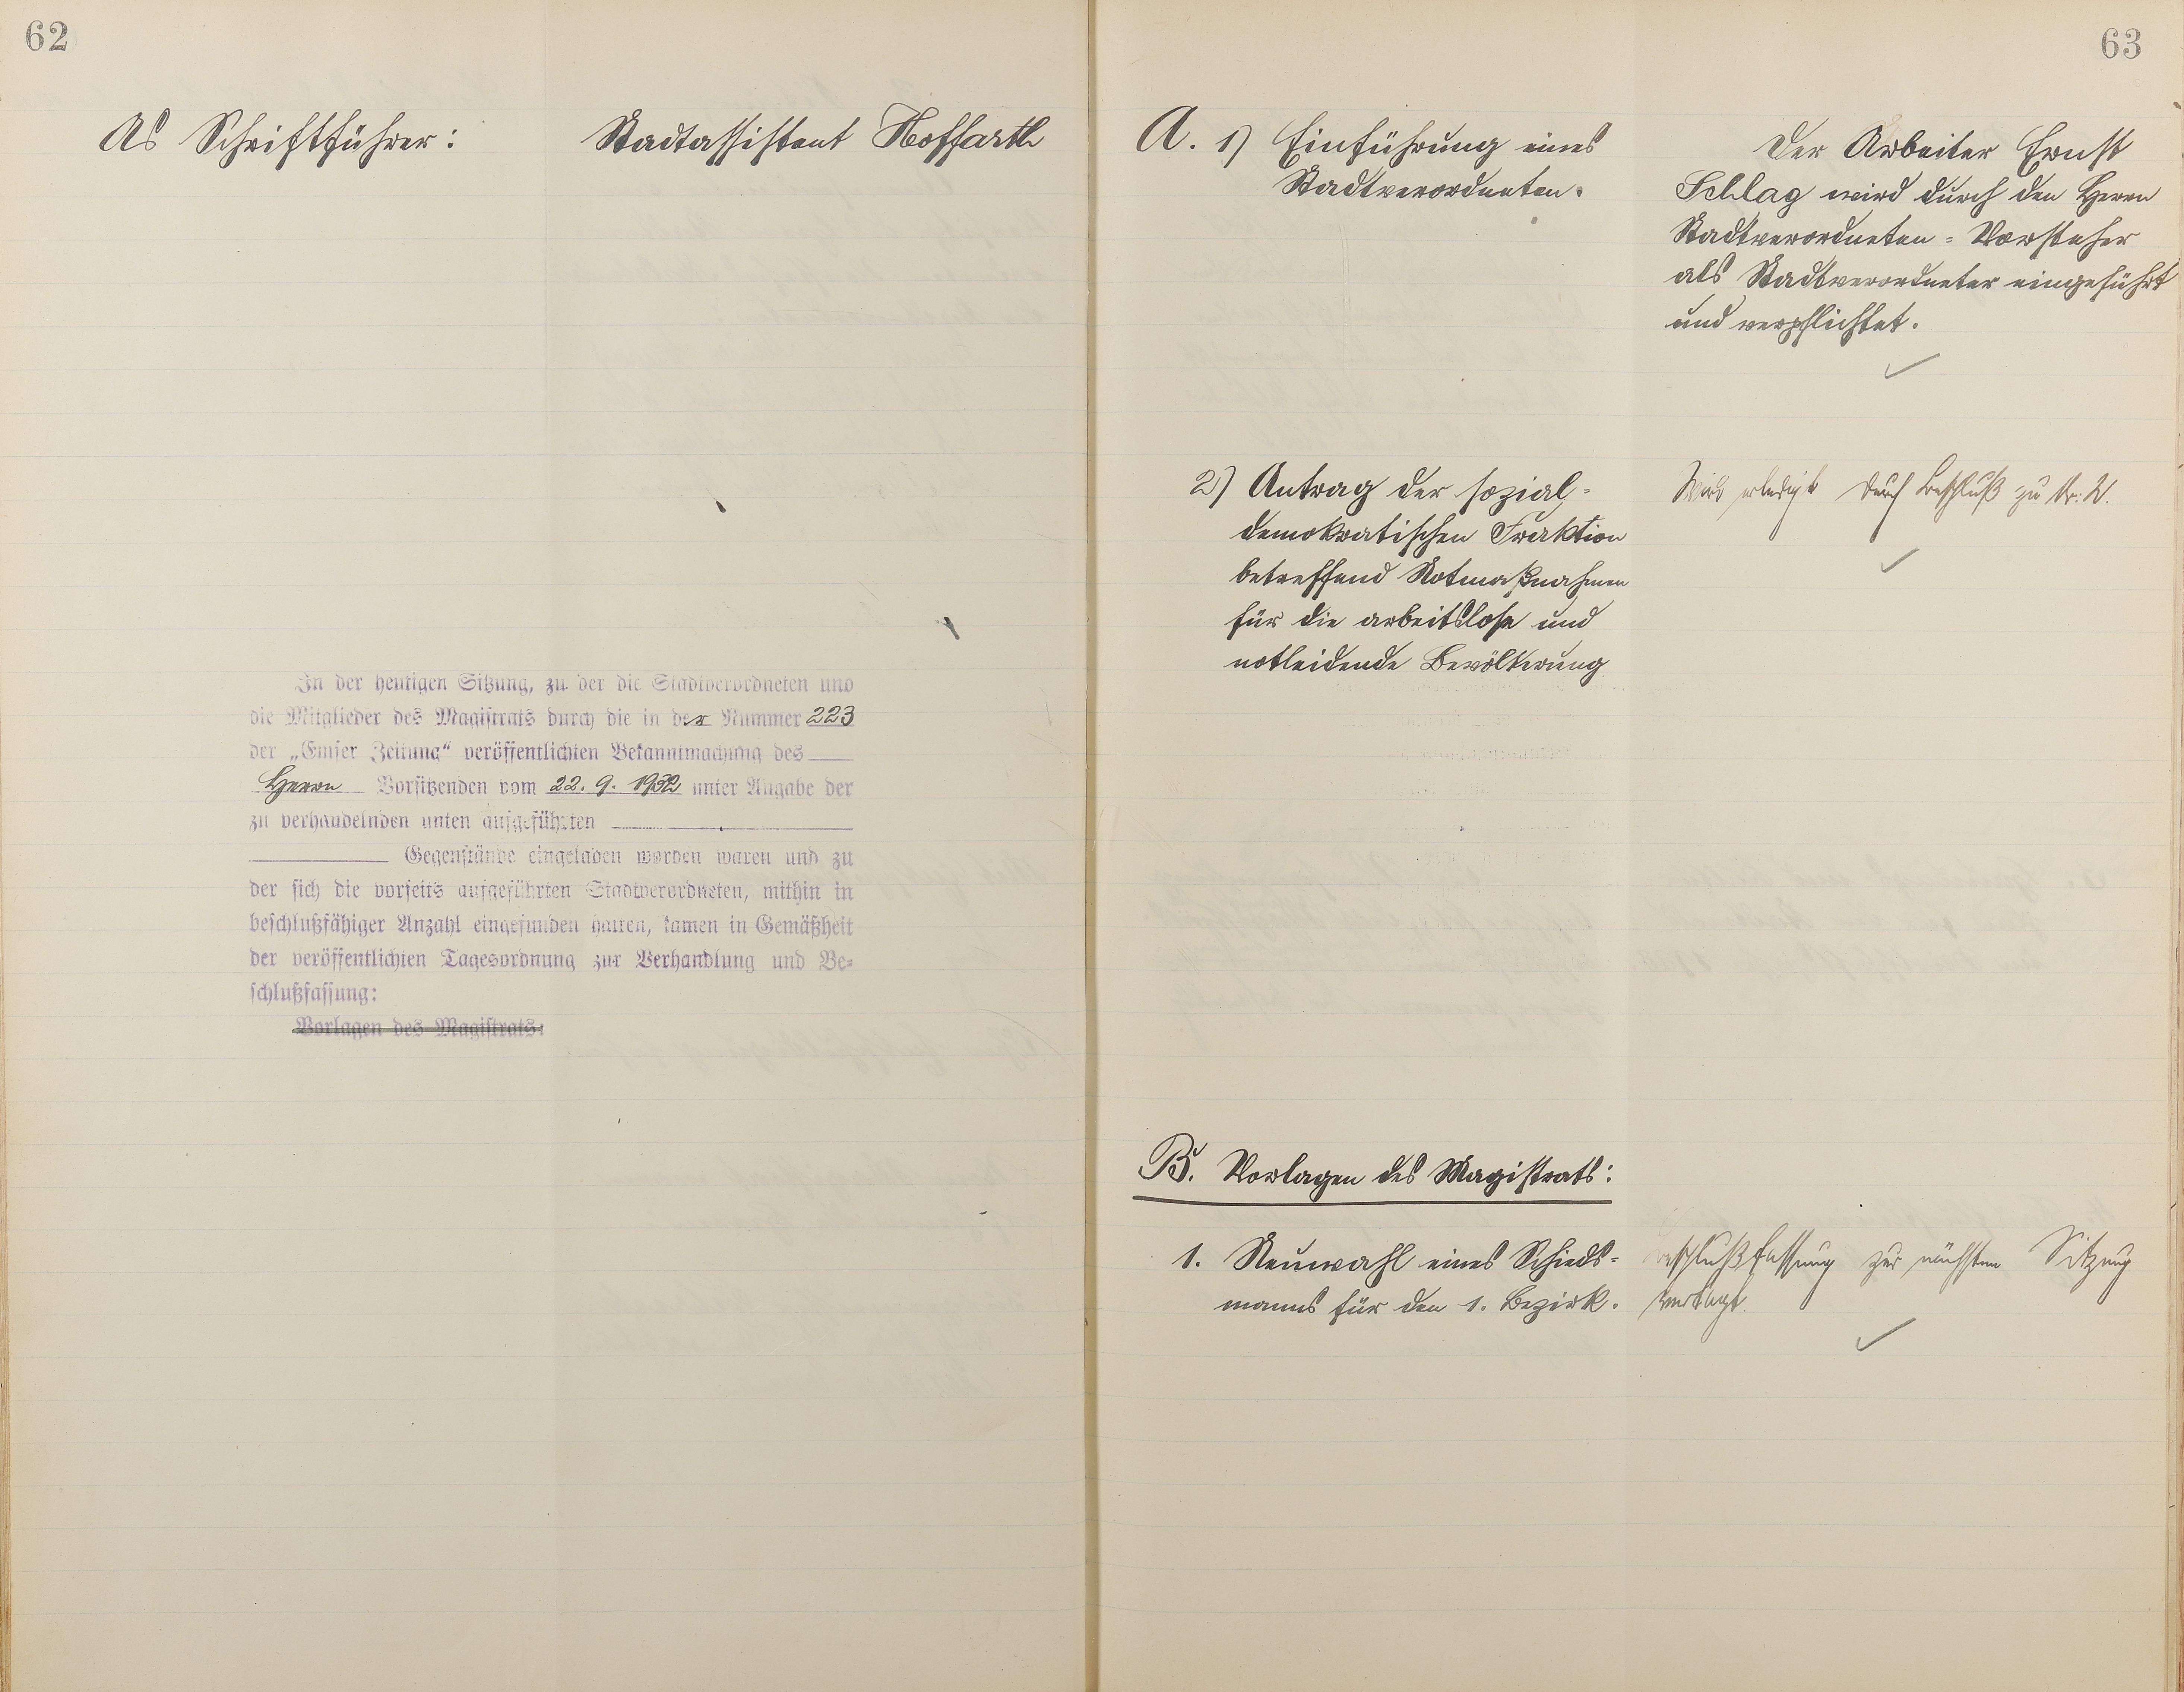 62
As Schriftführer: Stadtassistent Noffarth
In der heutigen Sitzung, zu der die Stadtverordneten und
die Mitglieder des Magistrats durch die in der Nummer 223
der „Emser Zeitung“ veröffentlichten Bekanntmachung des
Herrn Vorsitzenden vom 22. 9. 1932 unter Angabe der
zu verhandelnden unten aufgeführten
Gegenstände eingeladen worden waren und zu
der sich die vorseits aufgeführten Stadtverordneten, mithin in
beschlußfähiger Anzahl eingefunden hatten, kamen in Gemäßheit
der veröffentlichten Tagesordnung zur Verhandlung und Be-
schlußfassung:
Vorlagen des Magistrats:
63
A. 1) Einführung eines
Stadtverordneten.
Der Arbeiter Ernst
Schlag wird durch den Herrn
Stadtverordneten-Vorsteher
als Stadtverordneter eingeführt
und verpflichtet.
2) Antrag der sozial-
demokratischen Fraktion
betreffend Notmaßnahmen
für die arbeitslose und
notleidende Bevölkerung
Wird erledigt durch Beschluß zu Nr.
B. Vorlagen des Magistrats:
1. Neuwahl eines Schieds-
manns für den 1. Bezirk.
Beschlußfassung zur nächsten Sitzung
vertagt.